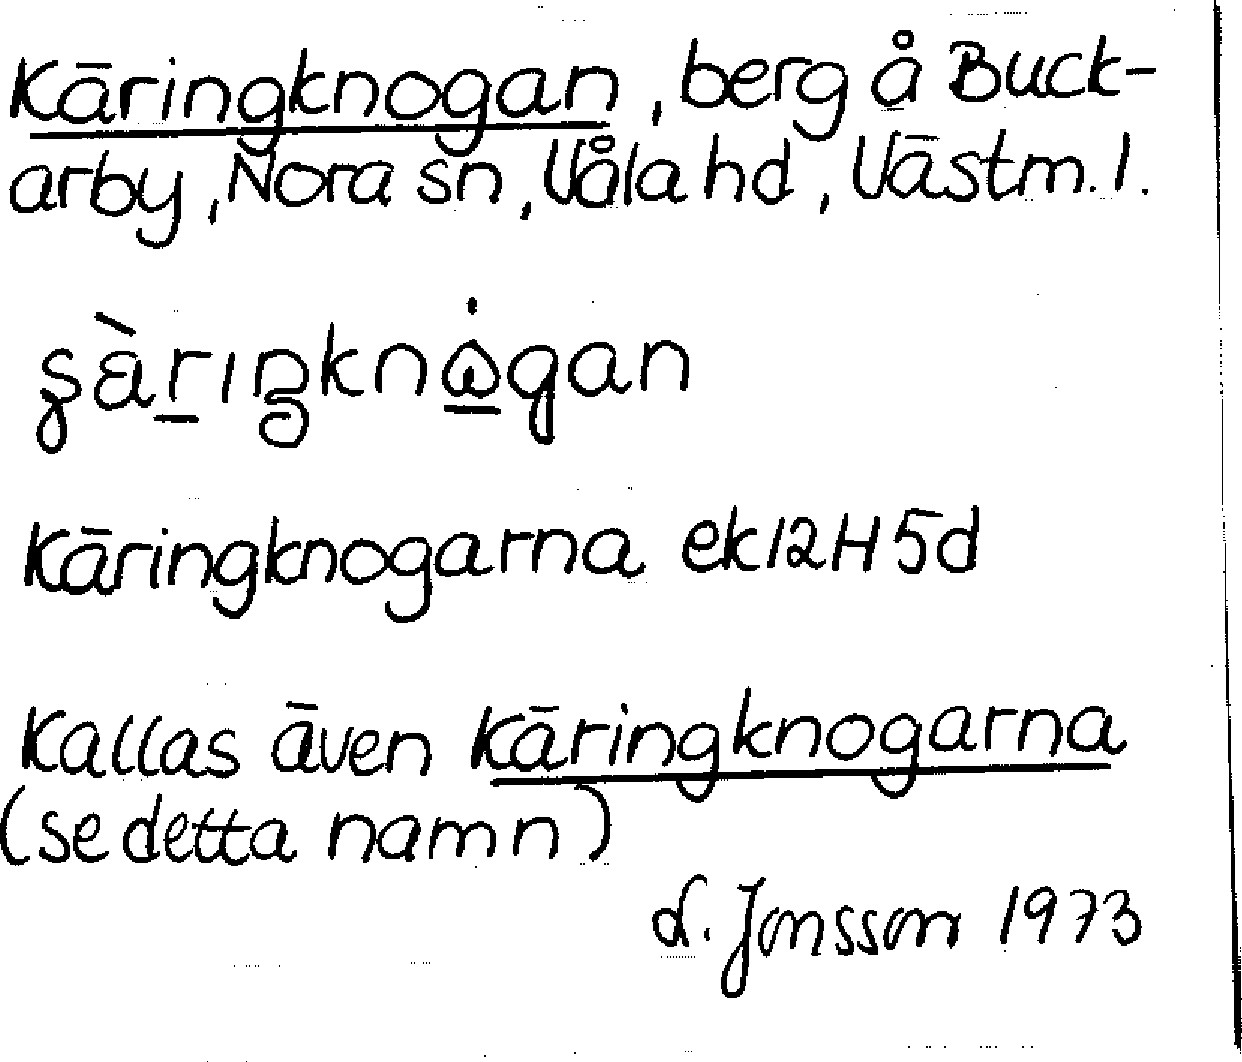 Käringknogan, berg å Buck-
arby, Nora sn, Våla hd, Västm. l.
Käringknogarna ek 12H 5d
Kallas även Käringknogarna
(se detta namn)
Jonsson 1973